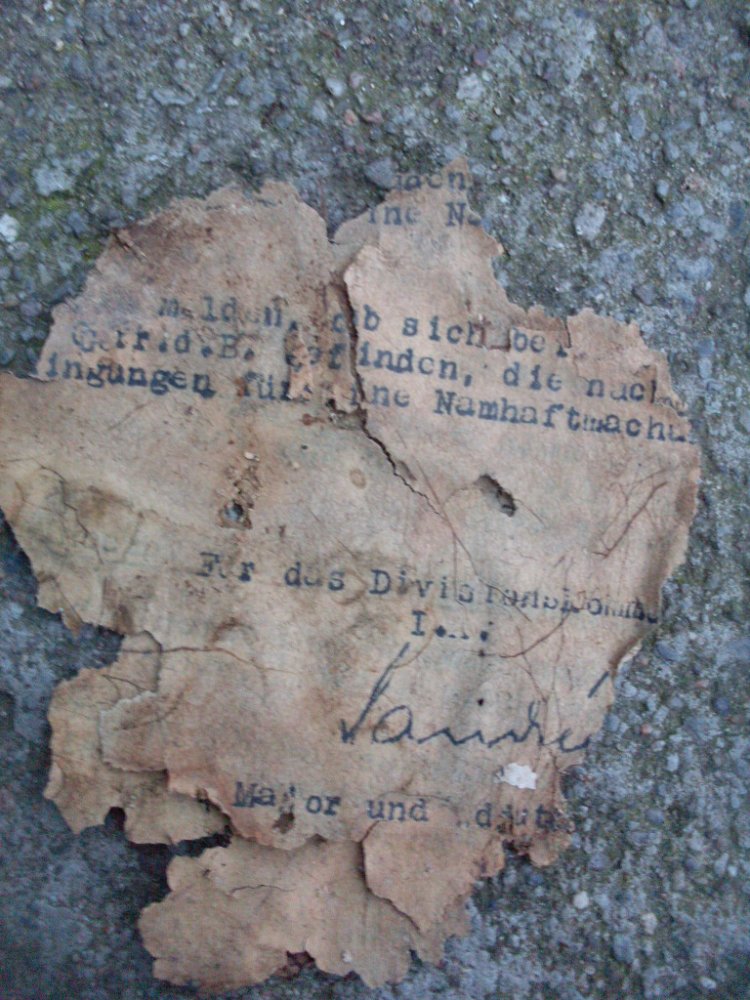 nden,
ine N
melden, ob sich bei
Gefr.d.B. befinden, die nach
ingungen für eine Namhaftmachu
Für das Divisionskomm
I.A.
Major und Adjut